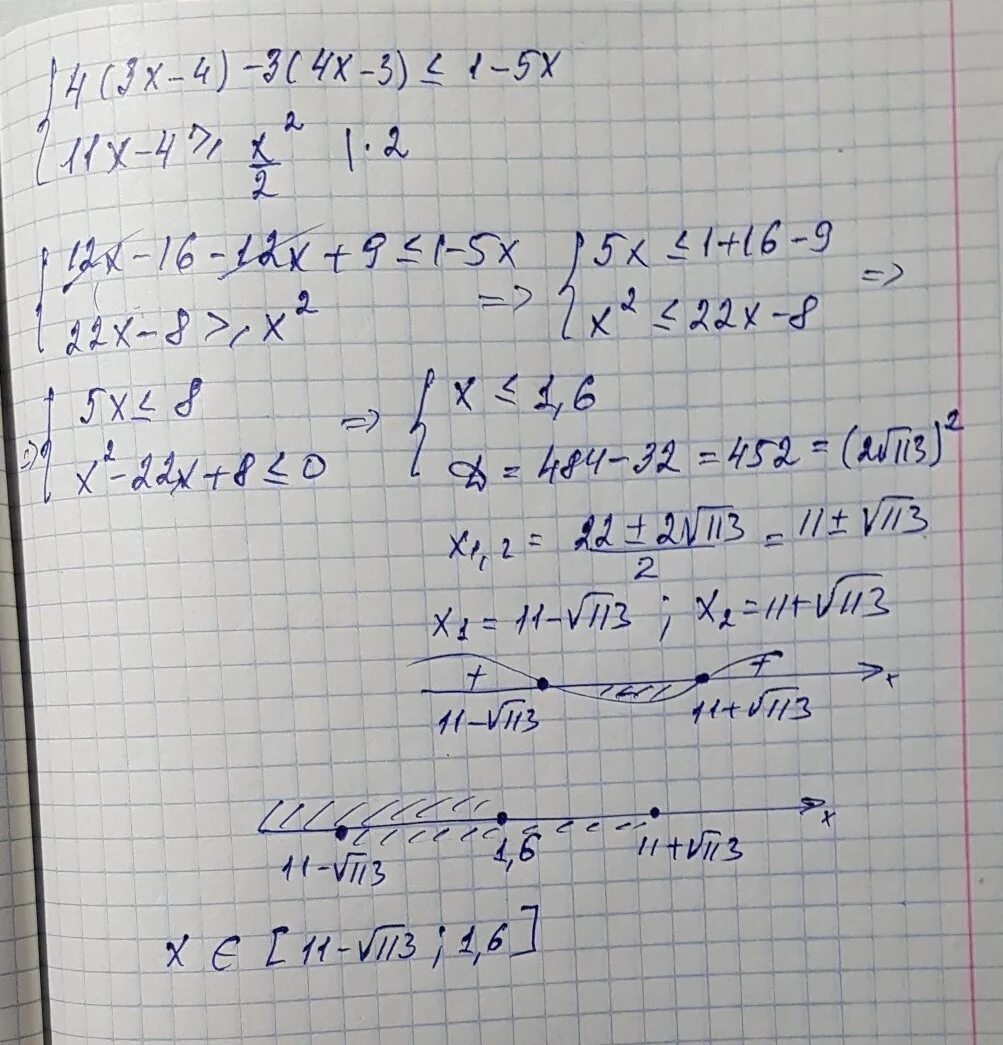 { 4(3x-4) -3(4x-3) ≤ 1-5x
{ 11x-4 ⩾ x²/2 | · 2
{ 12x-16-12x+9 ≤ 1-5x => { 5x ≤ 1+16-9 =>
{ 22x-8 ⩾ x² { x² ≤ 22x-8
=> { 5x ≤ 8 => { x ≤ 1,6
{ x²-22x+8 ≤ 0 { D = 484-32 = 452 = (2√113)²
x₁,₂ = (22 ± 2√113)/2 = 11 ± √113
x₁ = 11-√113 ; x₂ = 11+√113
+ +
11-√113 11+√113 x
11-√113 1,6 11+√113 x
x ∈ [11-√113 ; 1,6]